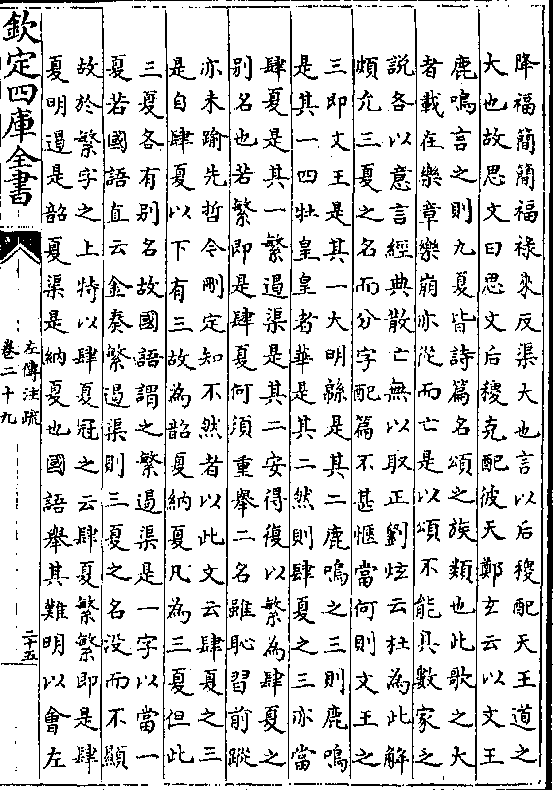 降福簡簡福祿來反渠大也言以后稷配天王道之
大也故思文曰思文后稷克配彼天鄭玄云以文王
鹿鳴言之則九夏皆詩篇名頌之族類也此歌之大
者載在樂章樂崩亦從而亡是以頌不能具數家之
說各以意言經典散亡無以取正劉炫云杜為此解
頗允三夏之名而分字配篇不甚愜當何則文王之
三即文王是其一大明緜是其二鹿鳴之三則鹿鳴
是其一四牡皇皇者華是其二然則肆夏之三亦當
肆夏是其一繁遏渠是其二安得復以繁為肆夏之
別名也若繁即是肆夏何須重舉二名雖恥習前蹤
亦未踰先哲今刪定知不然者以此文云肆夏之三
是自肆夏以下有三故為韶夏納夏凡為三夏但此
三夏各有別名故國語謂之繁遏渠是一字以當一
夏若國語直云金奏繁遏渠則三夏之名沒而不顯
故於繁字之上特以肆夏冠之云肆夏繁繁即是肆
夏明遏是韶夏渠是納夏也國語舉其難明以會左
欽定四庫全書
左傳注疏
卷二十九
二十五